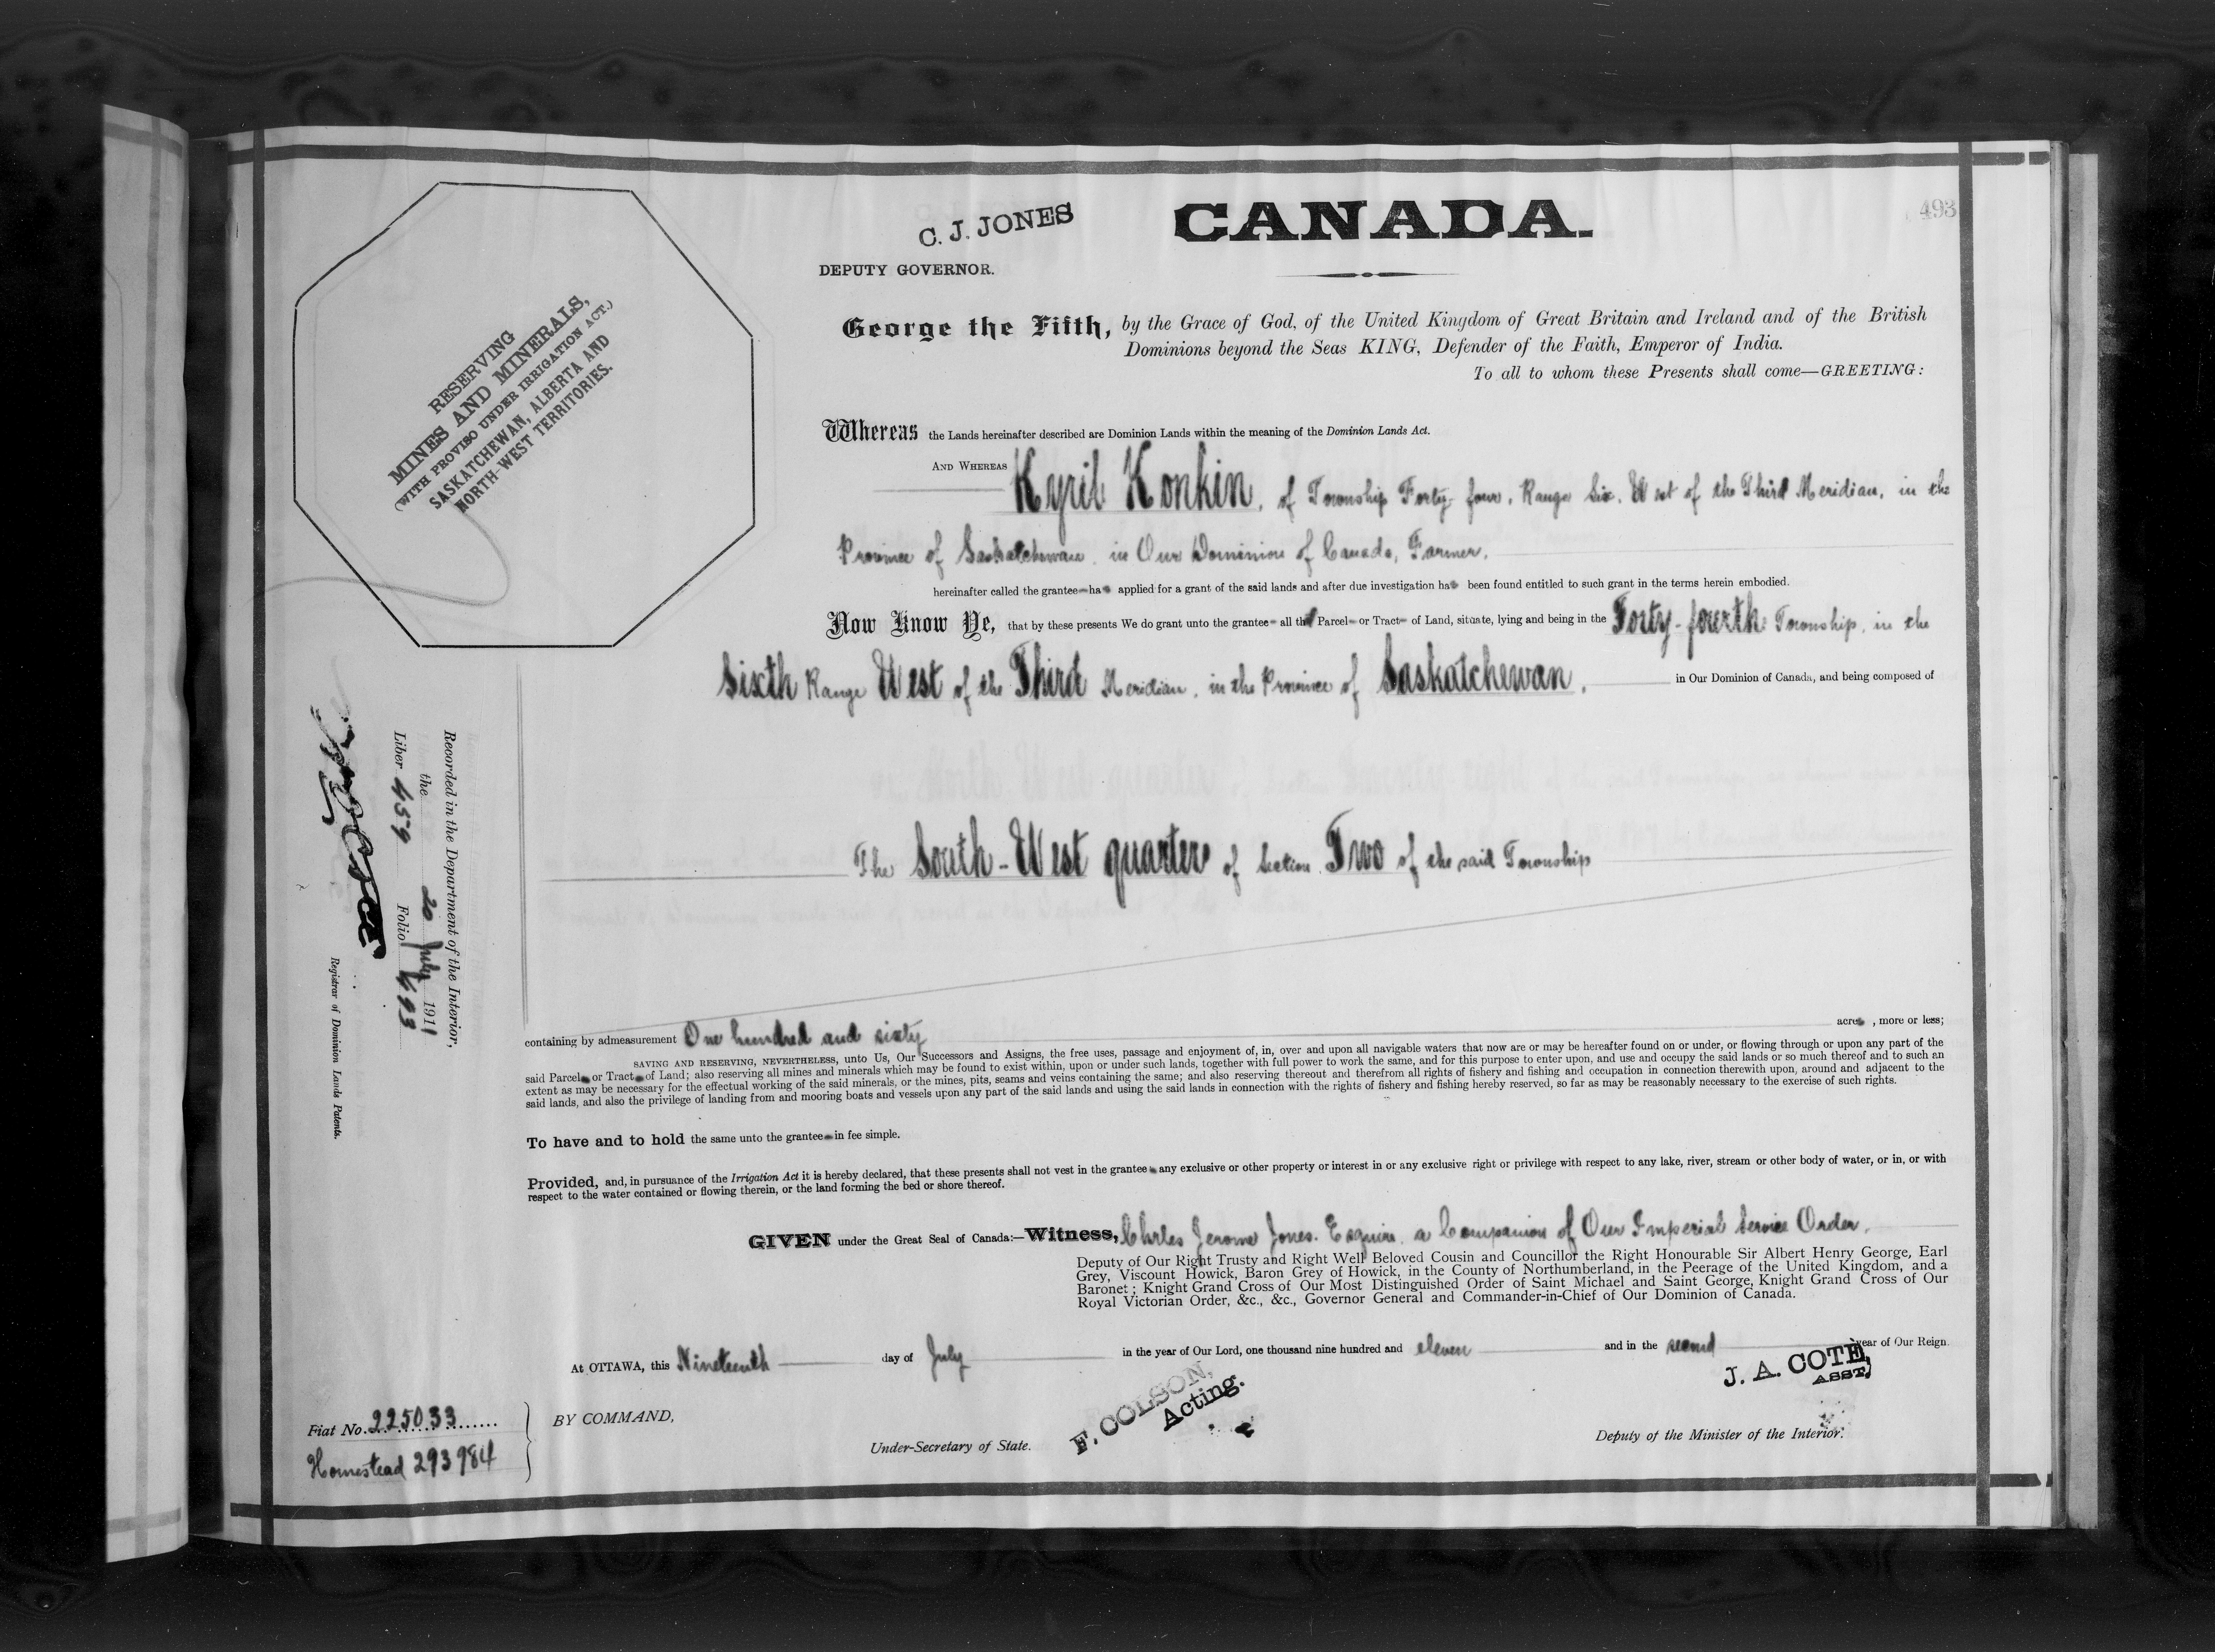 493
C. J. JONES
CANADA.
DEPUTY GOVERNOR.
RESERVING
MINES AND MINERALS,
(WITH PROVISO UNDER IRRIGATION ACT.)
SASKATCHEWAN, ALBERTA AND
NORTH-WEST TERRITORIES.
George the Fifth, by the Grace of God, of the United Kingdom of Great Britain and Ireland and of the British
Dominions beyond the Seas KING, Defender of the Faith, Emperor of India.
To all to whom these Presents shall come—GREETING:
Whereas the Lands hereinafter described are Dominion Lands within the meaning of the Dominion Lands Act.
AND WHEREAS Kyril Konkin, of Township Forty-four, Range Six, West of the Third Meridian, in the
Province of Saskatchewan, in Our Dominion of Canada, Farmer,
hereinafter called the grantee has applied for a grant of the said lands and after due investigation has been found entitled to such grant in the terms herein embodied.
Now Know Ye, that by these presents We do grant unto the grantee all that Parcel or Tract of Land, situate, lying and being in the Forty-fourth Township, in the
Sixth Range West of the Third Meridian, in the Province of Saskatchewan, in Our Dominion of Canada, and being composed of
The South-West quarter of Section Two of the said Township
containing by admeasurement One hundred and sixty acres, more or less;
SAVING AND RESERVING, NEVERTHELESS, unto Us, Our Successors and Assigns, the free uses, passage and enjoyment of, in, over and upon all navigable waters that now are or may be hereafter found on or under, or flowing through or upon any part of the
said Parcel or Tract of Land; also reserving all mines and minerals which may be found to exist within, upon or under such lands, together with full power to work the same, and for this purpose to enter upon, and use and occupy the said lands or so much thereof and to such an
extent as may be necessary for the effectual working of the said minerals, or the mines, pits, seams and veins containing the same; and also reserving thereout and therefrom all rights of fishery and fishing and occupation in connection therewith upon, around and adjacent to the
said lands, and also the privilege of landing from and mooring boats and vessels upon any part of the said lands and using the said lands in connection with the rights of fishery and fishing hereby reserved, so far as may be reasonably necessary to the exercise of such rights.
To have and to hold the same unto the grantee in fee simple.
Provided, and, in pursuance of the Irrigation Act it is hereby declared, that these presents shall not vest in the grantee any exclusive or other property or interest in or any exclusive right or privilege with respect to any lake, river, stream or other body of water, or in, or with
respect to the water contained or flowing therein, or the land forming the bed or shore thereof.
GIVEN under the Great Seal of Canada:—Witness, Chrles Jerome Jones, Esquire, a Companion of Our Imperial Service Order,
Deputy of Our Right Trusty and Right Well Beloved Cousin and Councillor the Right Honourable Sir Albert Henry George, Earl
Grey, Viscount Howick, Baron Grey of Howick, in the County of Northumberland, in the Peerage of the United Kingdom, and a
Baronet; Knight Grand Cross of Our Most Distinguished Order of Saint Michael and Saint George, Knight Grand Cross of Our
Royal Victorian Order, &c., &c., Governor General and Commander-in-Chief of Our Dominion of Canada.
At OTTAWA, this Nineteenth day of July in the year of Our Lord, one thousand nine hundred and eleven and in the second year of Our Reign.
BY COMMAND,
F. COLSON,
Acting.
Under-Secretary of State.
J. A. COTE,
ASST,
Deputy of the Minister of the Interior.
Fiat No. 225033
Homestead 293984
Recorded in the Department of the Interior,
the 20 July 1911
Liber 459 Folio 493
Registrar of Dominion Lands Patents.